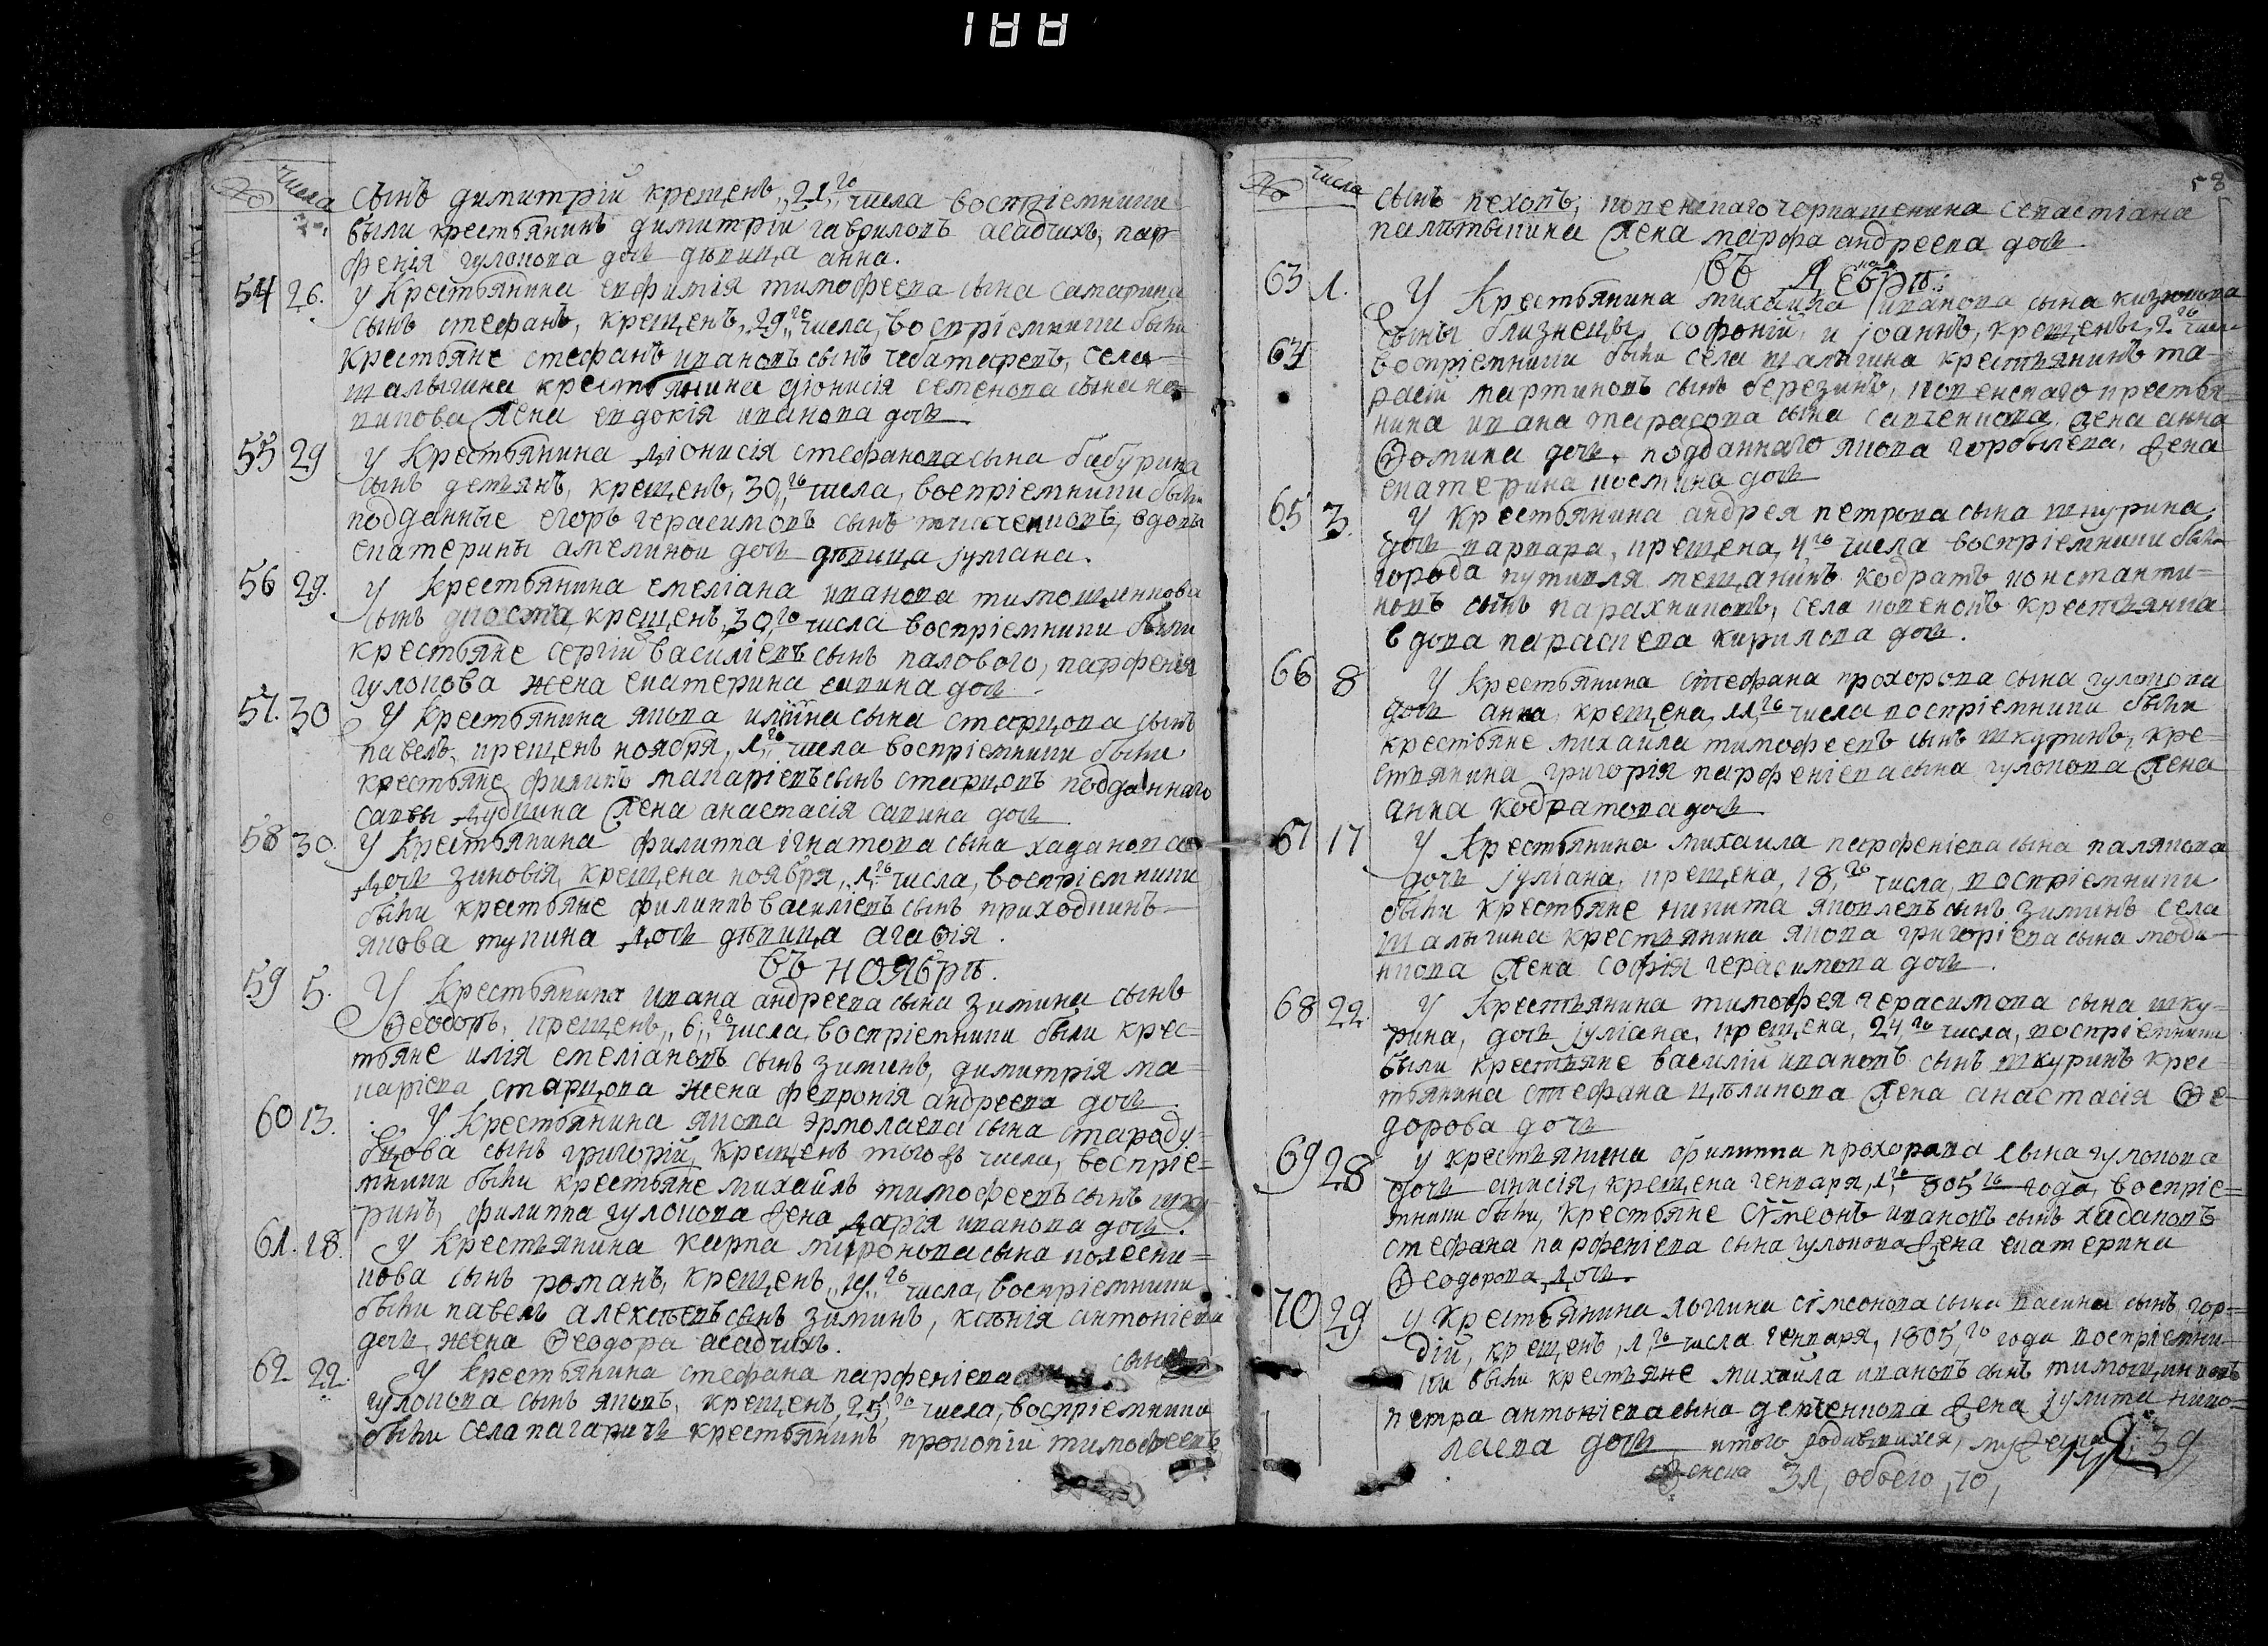 188
№ числа
сынъ димитрій крещенъ, 21,го числа воспріемники
были крестьянинъ димитріи гавриловъ асадчихъ, пар
фенія гулокова дочь дѣвица анна.
54 26. У Крестьянина евфимія тимофеева сына самарина
сынъ стефанъ, крещенъ, 29,го числа, воспріемники были
крестьяне стефанъ ивановъ сынъ чеботаревъ, села
шалыгина крестьянина діонисія семенова сына
жена евдокія иванова дочь
55 29 У Крестьянина діонисія стефанова сына бабурина
сынъ демьянъ, крещенъ, 30,го числа, воспріемники были
подданные егоръ герасимовъ сынъ вдовы
екатерины амелиной дочь дѣвица іуліана.
56 29. У крестьянина емеліана иванова тимошенкова
сынъ крещенъ, 30,го числа воспріемники были
крестьяне сергій василіевъ сынъ палового, парфенія
гулокова жена екатерина саввина дочь
57. 30 У Крестьянина якова иліина сына старцова сынъ
павелъ, крещенъ ноября, 1,го числа воспріемники были
крестьяне филипъ макаріевъ сынъ старцовъ подданнаго
саввы дудкина жена анастасія савина дочь
58 30. У Крестьянина филиппа ігнатова сына хаданова
дочь зиновія, крещена ноября, 1,го числа, воспріемники
были крестьяне филиппъ василіевъ сынъ приходкинъ
якова тупина дочь дѣвица агафія.
въ ноябрѣ.
59 5. У Крестьянина ивана андреева сына зимина сынъ
Ѳеодоръ, крещенъ, 6,го числа, воспріемники были крес-
тьяне илія емеліановъ сынъ зиминъ, димитрія ма-
каріева старцова жена февронія андреева дочь
60 13. У Крестьянина якова эрмолаева сына староду-
бцова сынъ григорій, крещенъ того ж числа, воспріе-
мники были крестьяне михаилъ тимофеевъ сынъ шку
ринъ, филиппа гулокова жена дарія иванова дочь.
61. 18. У Крестьянина карпа миронова сына колесни-
кова сынъ романъ, крещенъ, 19,го числа, воспріемники
были павелъ алексѣевъ сынъ зиминъ, ксѣнія антоніева
дочь жена Ѳеодора асадчихъ.
62. 22. У Крестьянина стефана парфеніева сына
гулокова сынъ яковъ, крещенъ, 23,го числа, воспріемники
были села вагаричъ крестьянинъ прокопіи тимофеевъ
58
№ числа
сынъ пехопъ, копенкаго черкашенина севастіана
палитыкина жена марфа андреева дочь
въ декабрѣ.
63 1. У Крестьянина михаила иванова сына
сыны близнецы, софоній, и іоаннъ, крещены, 2,го числа
64 воспріемники были села шалыгина крестьянинъ та-
расій мартиновъ сынъ березинъ, копенскаго крестья-
нина ивана тарасова сына савченкова жена анна
Ѳомина дочь. подданнаго якова горобзева, жена
екатерина костина дочь
65 3. У Крестьянина андрея петрова сына шкурина,
дочь варвара, крещена, 4го числа воспріемники были
города путивля мещанинъ кодратъ константи-
новъ сынъ парахниковъ, села копенокъ крестьянка
вдова параскева кирилова дочь.
66 8 У Крестьянина стефана прохорова сына гулокова
дочь анна, крещена, 11,го числа воспріемники были
крестьяне михаила тимофеевъ сынъ шкуринъ, кре-
стьянина григорія парфеніева сына гулокова жена
анна кодратова дочь
67 17 У Крестьянина михаила парфеніева сына палякова
дочь іуліана, крещена, 18,го числа, воспріемники
были крестьяне никита яковлевъ сынъ зиминъ села
шалыгина крестьянина якова григоріева сына моди-
нкова жена софія герасимова дочь.
68 22. У Крестьянина тимофея герасимова сына шку-
рина, дочь іуліана, крещена, 24,го числа, воспріемники
были крестьяне василій ивановъ сынъ шкуринъ крес-
тьянина стефана цѣликова жена анастасія Ѳе-
дорова дочь
69 28 У крестьянина филиппа прохорова сына гулокова
дочь анисія, крещена генваря, 1,го 805го года, воспріе-
мники были, крестьяне Сѵмеонъ ивановъ сынъ хадановъ
стефана парфеніева сына гулокова жена екатерина
Ѳеодорова дочь.
70 29 У Крестьянина логгина сімеонова сына васина сынъ гор-
дій, крещенъ, 1,го числа генваря, 1805,го года воспріемни-
ки были крестьяне михаила ивановъ сынъ тимошенковъ
петра антоніева сына жена іулита нико-
лаева дочь итого родившихся, мужеска 39
женска 31, обоего, 70,